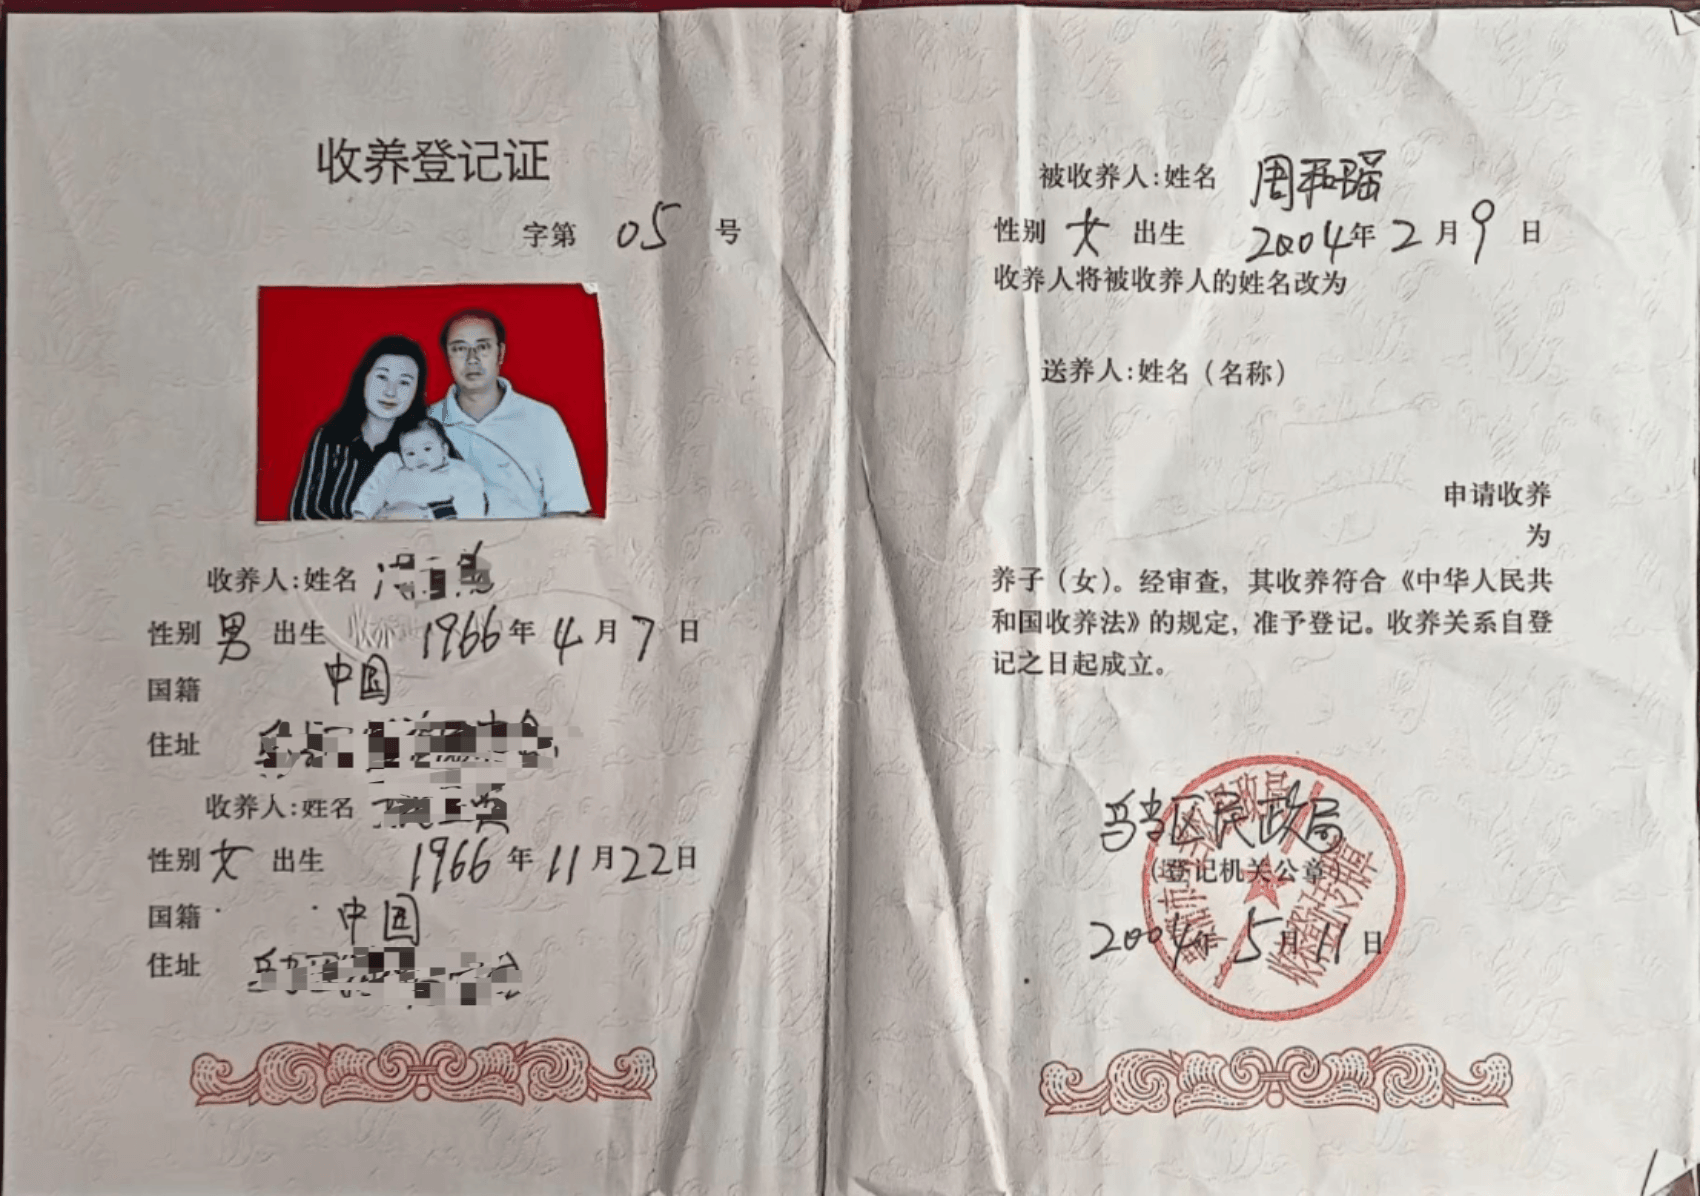 收养登记证
字第 05 号
收养人:姓名
性别 男 出生 1966年4月7日
国籍 中国
住址
收养人:姓名
性别 女 出生 1966年11月22日
国籍 中国
住址
被收养人:姓名 周和瑶
性别 女 出生 2004年2月9日
收养人将被收养人的姓名改为
送养人:姓名（名称）
申请收养
为
养子（女）。经审查，其收养符合《中华人民共
和国收养法》的规定，准予登记。收养关系自登
记之日起成立。
乌当区民政局
（登记机关公章）
2004年5月11日